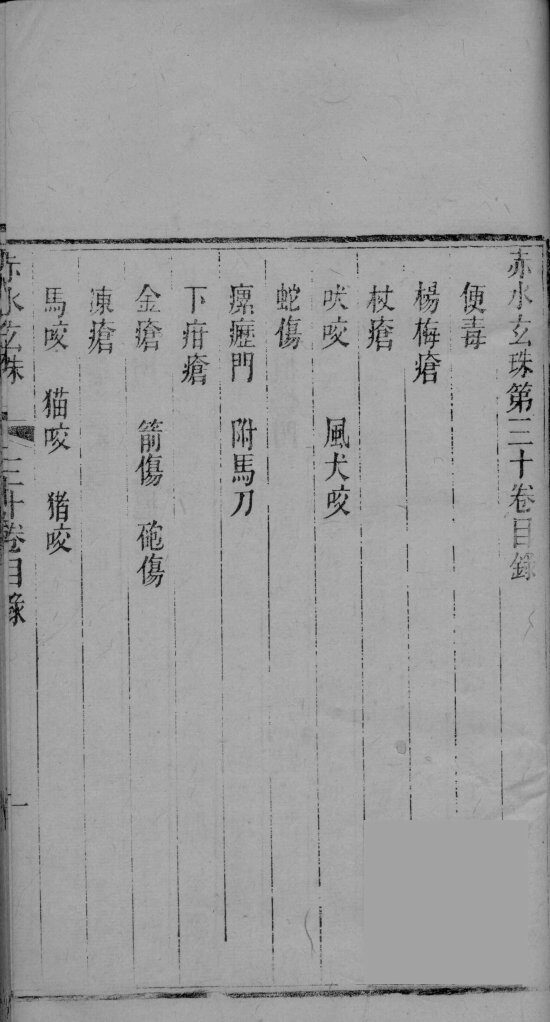 赤水玄珠第三十卷目錄
便毒
楊梅瘡
杖瘡
吠咬 風犬咬
蛇傷
瘰癧門 附馬刀
下疳瘡
金瘡 箭傷 砲傷
凍瘡
馬咬 猫咬 猪咬
赤水玄珠 三十卷目錄 一